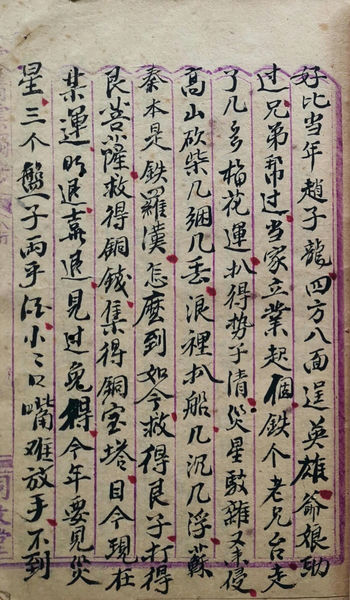 好比当年趙子龍四方八面逞英雄爺娘助
过兄弟帮过当家立業起個鉄个老兄台走
了几多梅花運扒得勢子清災星駁雜又来侵
高山砍柴几綑几丢浪裡扒船几沉几浮蘇
秦本是鉄羅漢怎麽到如今救得艮子打得
艮菩隆救得銅錢集得銅宝塔目今現在
某運明退嘉退見过兔得今年要見災
星三个盤子両手活小二口嘴难放手不到